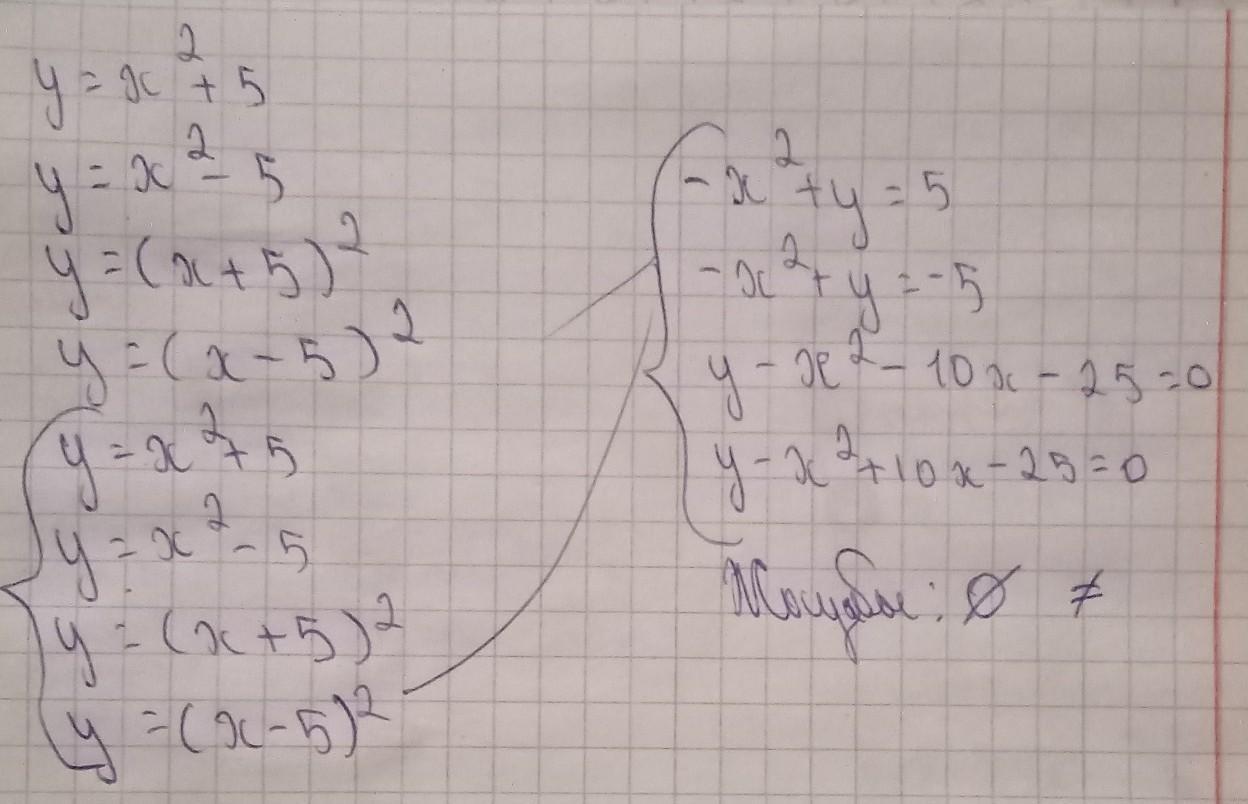 y = x² + 5
y = x² - 5
y = (x + 5)²
y = (x - 5)²
y = x² + 5
y = x² - 5
y = (x + 5)²
y = (x - 5)²
-x² + y = 5
-x² + y = -5
y - x² - 10x - 25 = 0
y - x² + 10x - 25 = 0
Жауабы: ∅ ≠